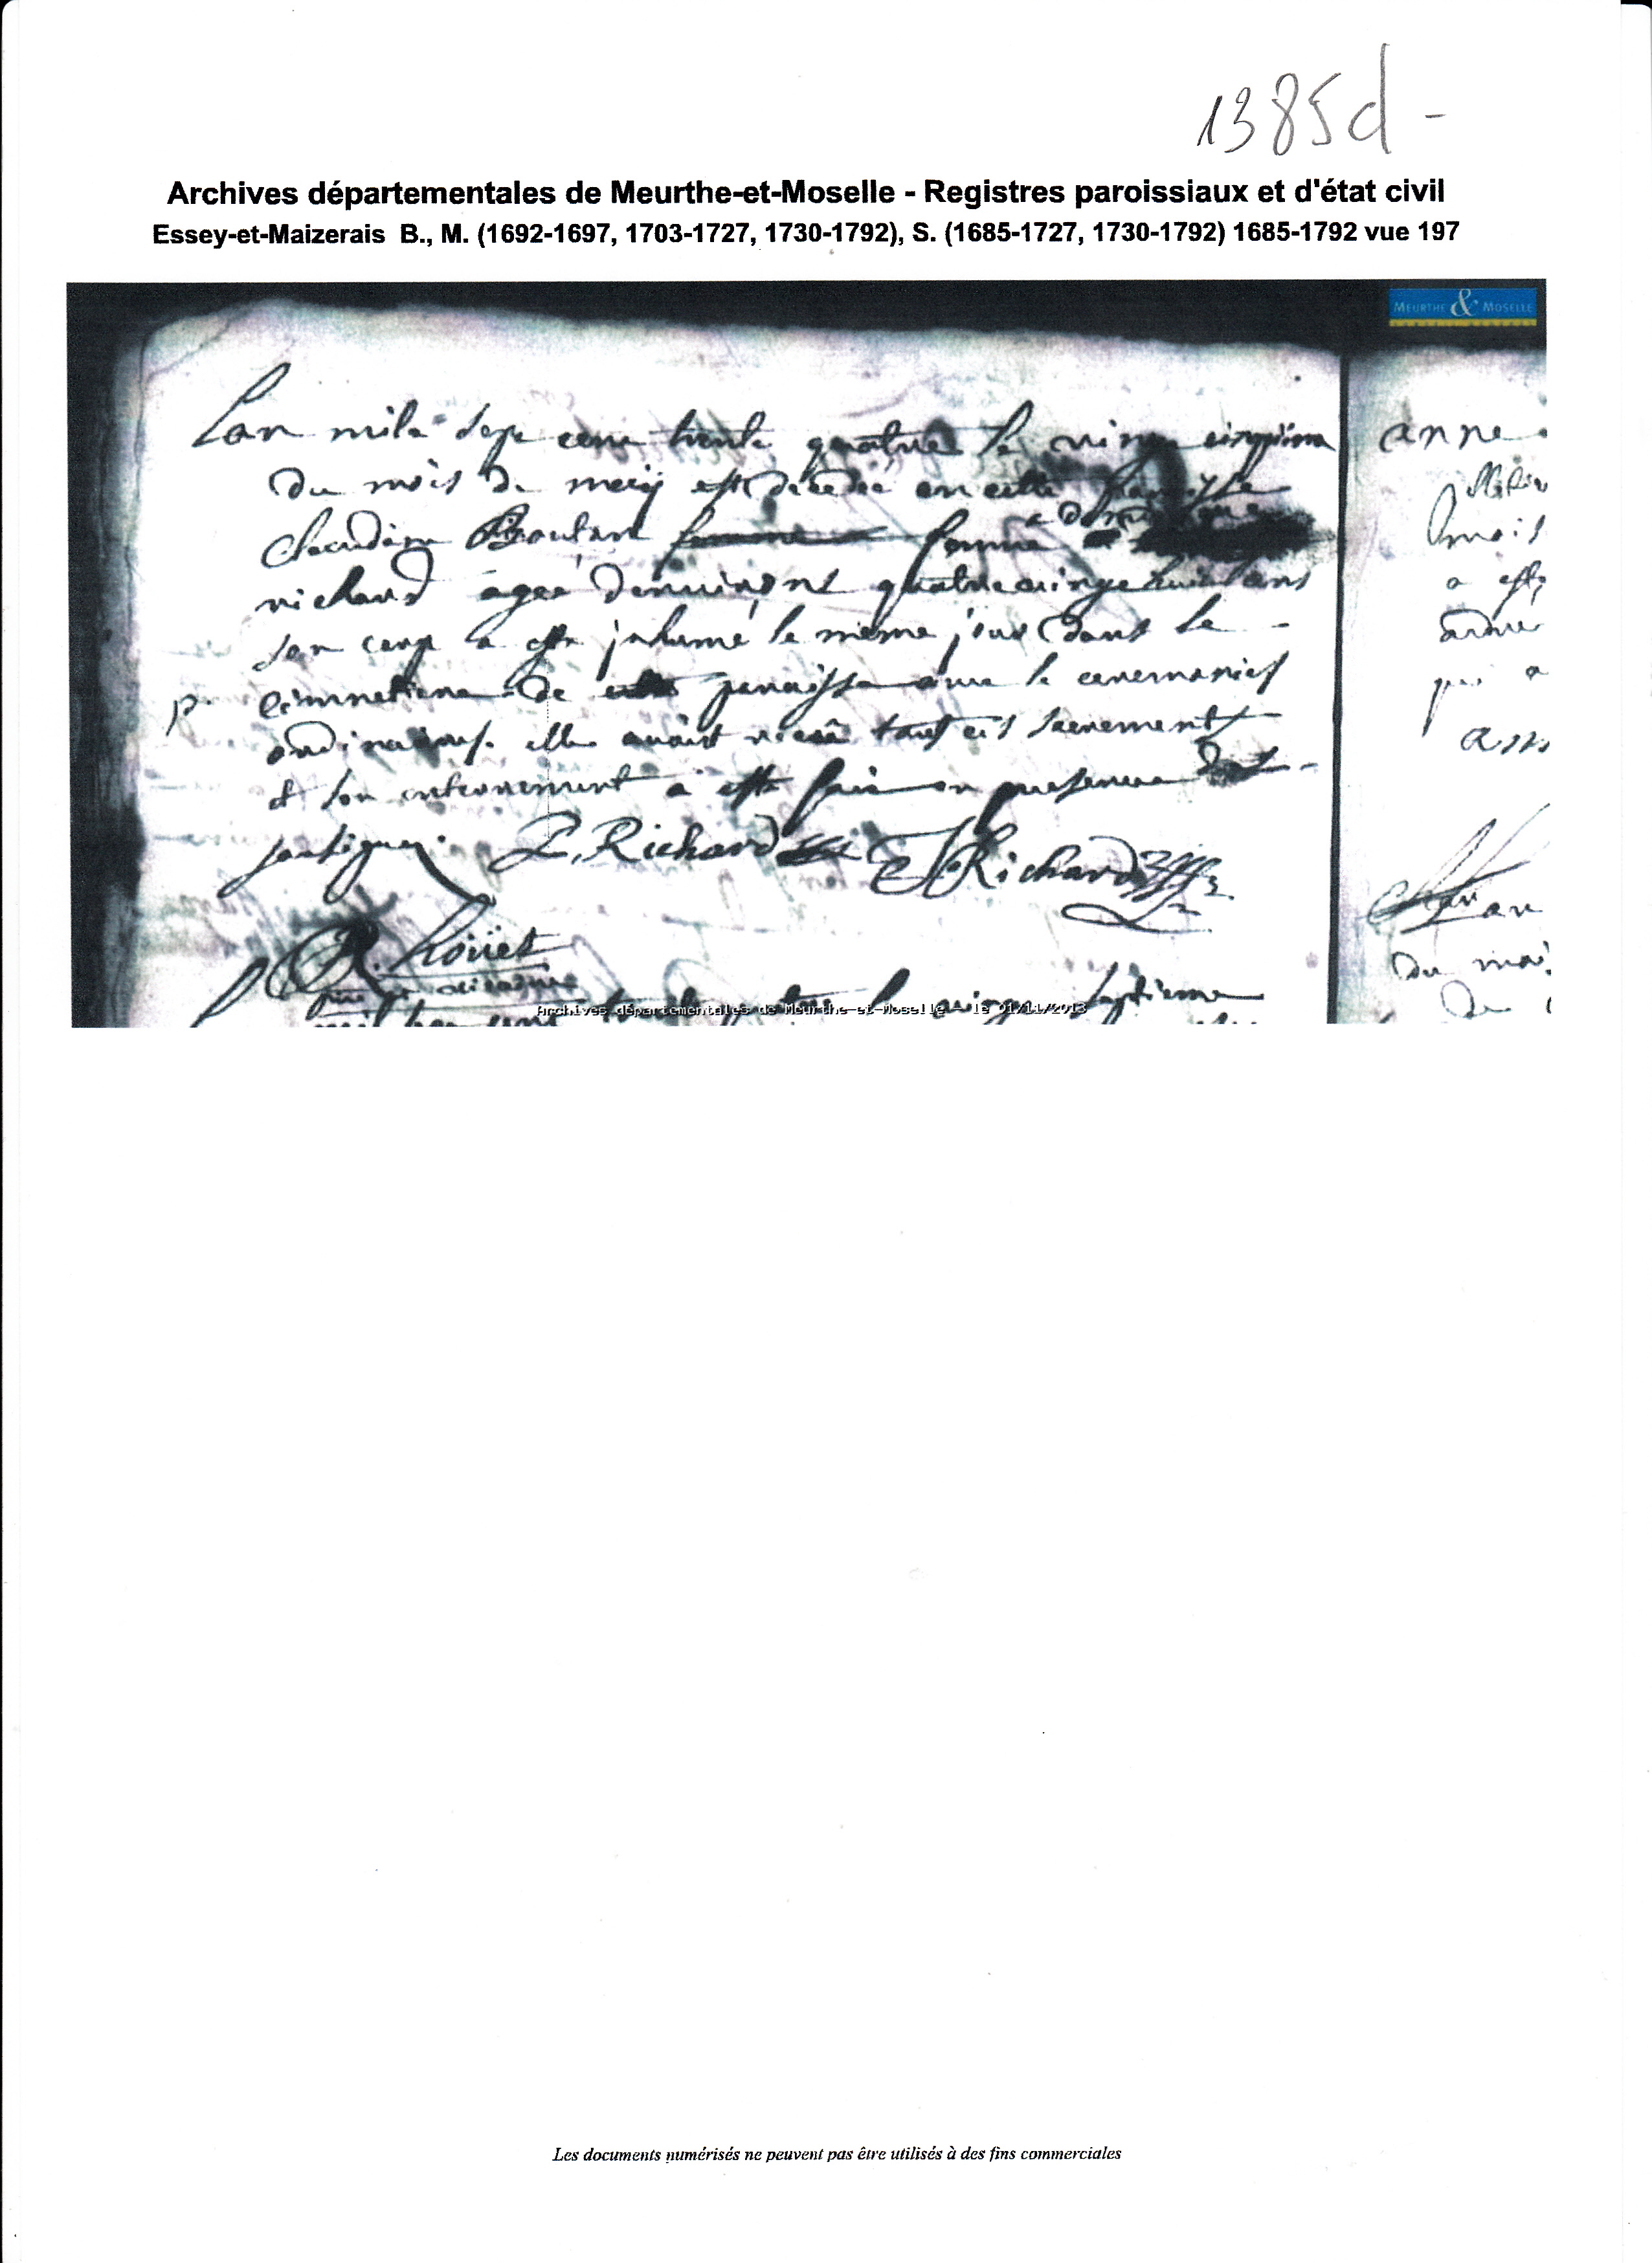 1385d -
Archives départementales de Meurthe-et-Moselle - Registres paroissiaux et d'état civil
Essey-et-Maizerais B., M. (1692-1697, 1703-1727, 1730-1792), S. (1685-1727, 1730-1792) 1685-1792 vue 197
MEURTHE & MOSELLE
Lan mile sept cent trente quatre le vingt cinqième
du mois de meiÿ est decedee en cette paroisse
a dominique
claudine femme femme
richard agée denviront quatre vingt huit ans
son corp a este inhumé le même jour dans le -
cimmetiere de cette paroisse avec le ceremonies
ordinaires. elle avoit recû tout cis sacrements
et son enterrement a este fait en presence
sousigner. Richard Richard
R. hoüet
septieme
Archives départementales de Meurthe-et-Moselle - le 01/11/2013
anne
mois
a este
qui a
du moi
de
Les documents numérisés ne peuvent pas être utilisés à des fins commerciales